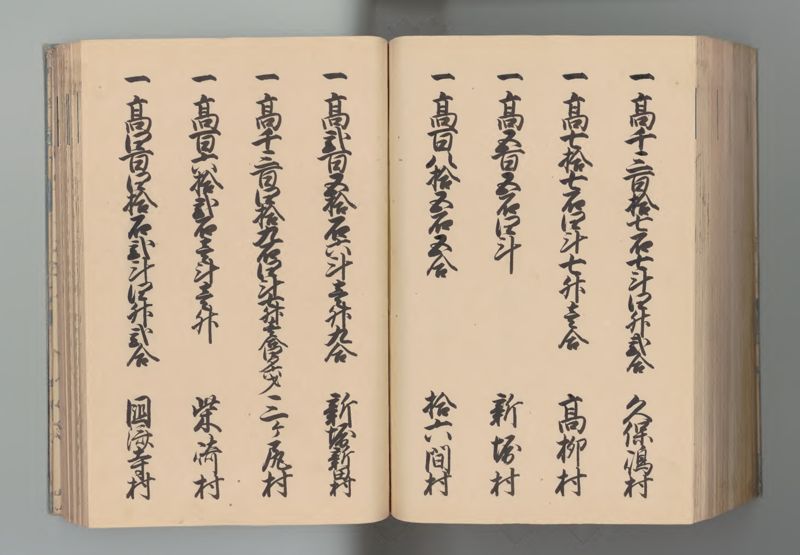 一 高千三百拾七石七斗四升弐合 久保嶋村
一 高七拾七石四斗七升壱合 高柳村
一 高五百五石四斗 新堀村
一 高百八拾五石五合 拾六間村
一 高弐百五拾石六斗壱升九合 新堀新田村
一 高千三百四拾九石四斗七升壱合 三ヶ尻村
一 高百六拾弐石壱斗壱升 柴崎村
一 高四百四拾石弐斗四升弐合 國済寺村